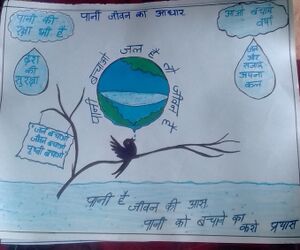 पानी जीवन का आधार
पानी की
रक्षा भी है
आओ बचायें
वर्षा
पानी बचाओ जल है तो जीवन है
धरा
की
सुरक्षा
जल
और
सजल
अपना
कल
जल बचाओ
जीवन बचाओ
पृथ्वी बचाओ
पानी है जीवन की आस
पानी को बचाने का
करो प्रयास